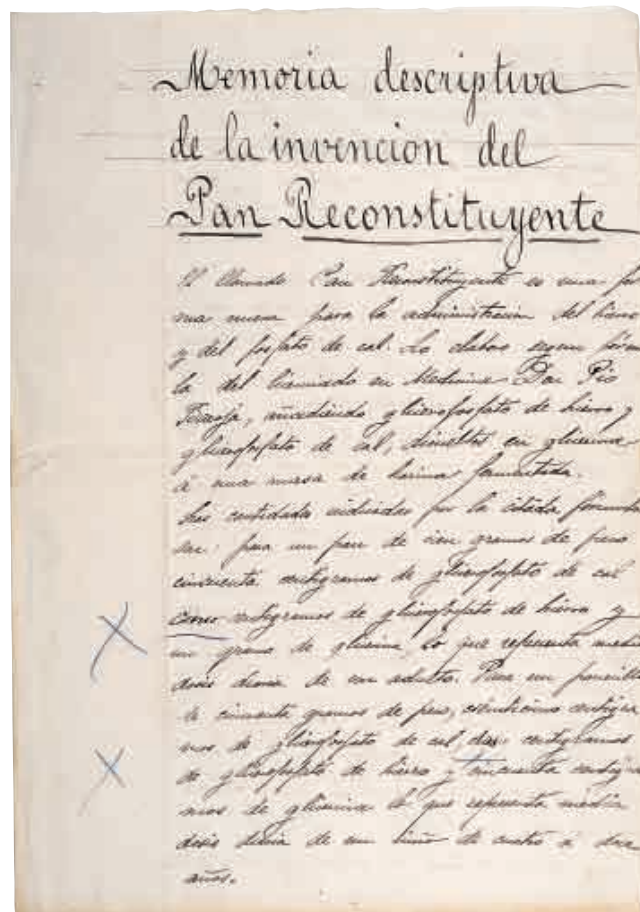 Memoria descriptiva
de la invencion del
Pan Reconstituyente
El llamado Pan Reconstituyente es una for
ma nueva para la administracion del hierro
y del fosfato de cal. Lo elaboro segun fórmu
la del licenciado en Medicina Don Pio
Baroja, añadiendo glicerofosfato de hierro y
glicerofosfato de cal, disueltos en glicerina
á una masa de harina fermentada.
Las cantidades indicadas por la citada fórmula
son: para un pan de cien gramos de peso
cincuenta centigramos de glicerofosfato de cal
centigramos de glicerofosfato de hierro y
un gramo de glicerina, lo que representa media
dosis diaria de un adulto. Para un panecillo
de cincuenta gramos de peso, veinticinco centigra
mos de glicerofosfato de cal, centigramos
de glicerofosfato de hierro y cincuenta centigra
mos de glicerina lo que representa media
dosis diaria de un niño de cuatro á doce
años.